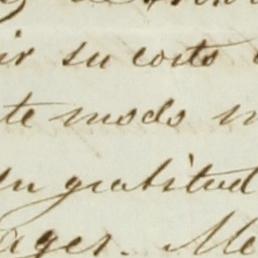 ir su costo
te modo
su gratitud
ager. Me